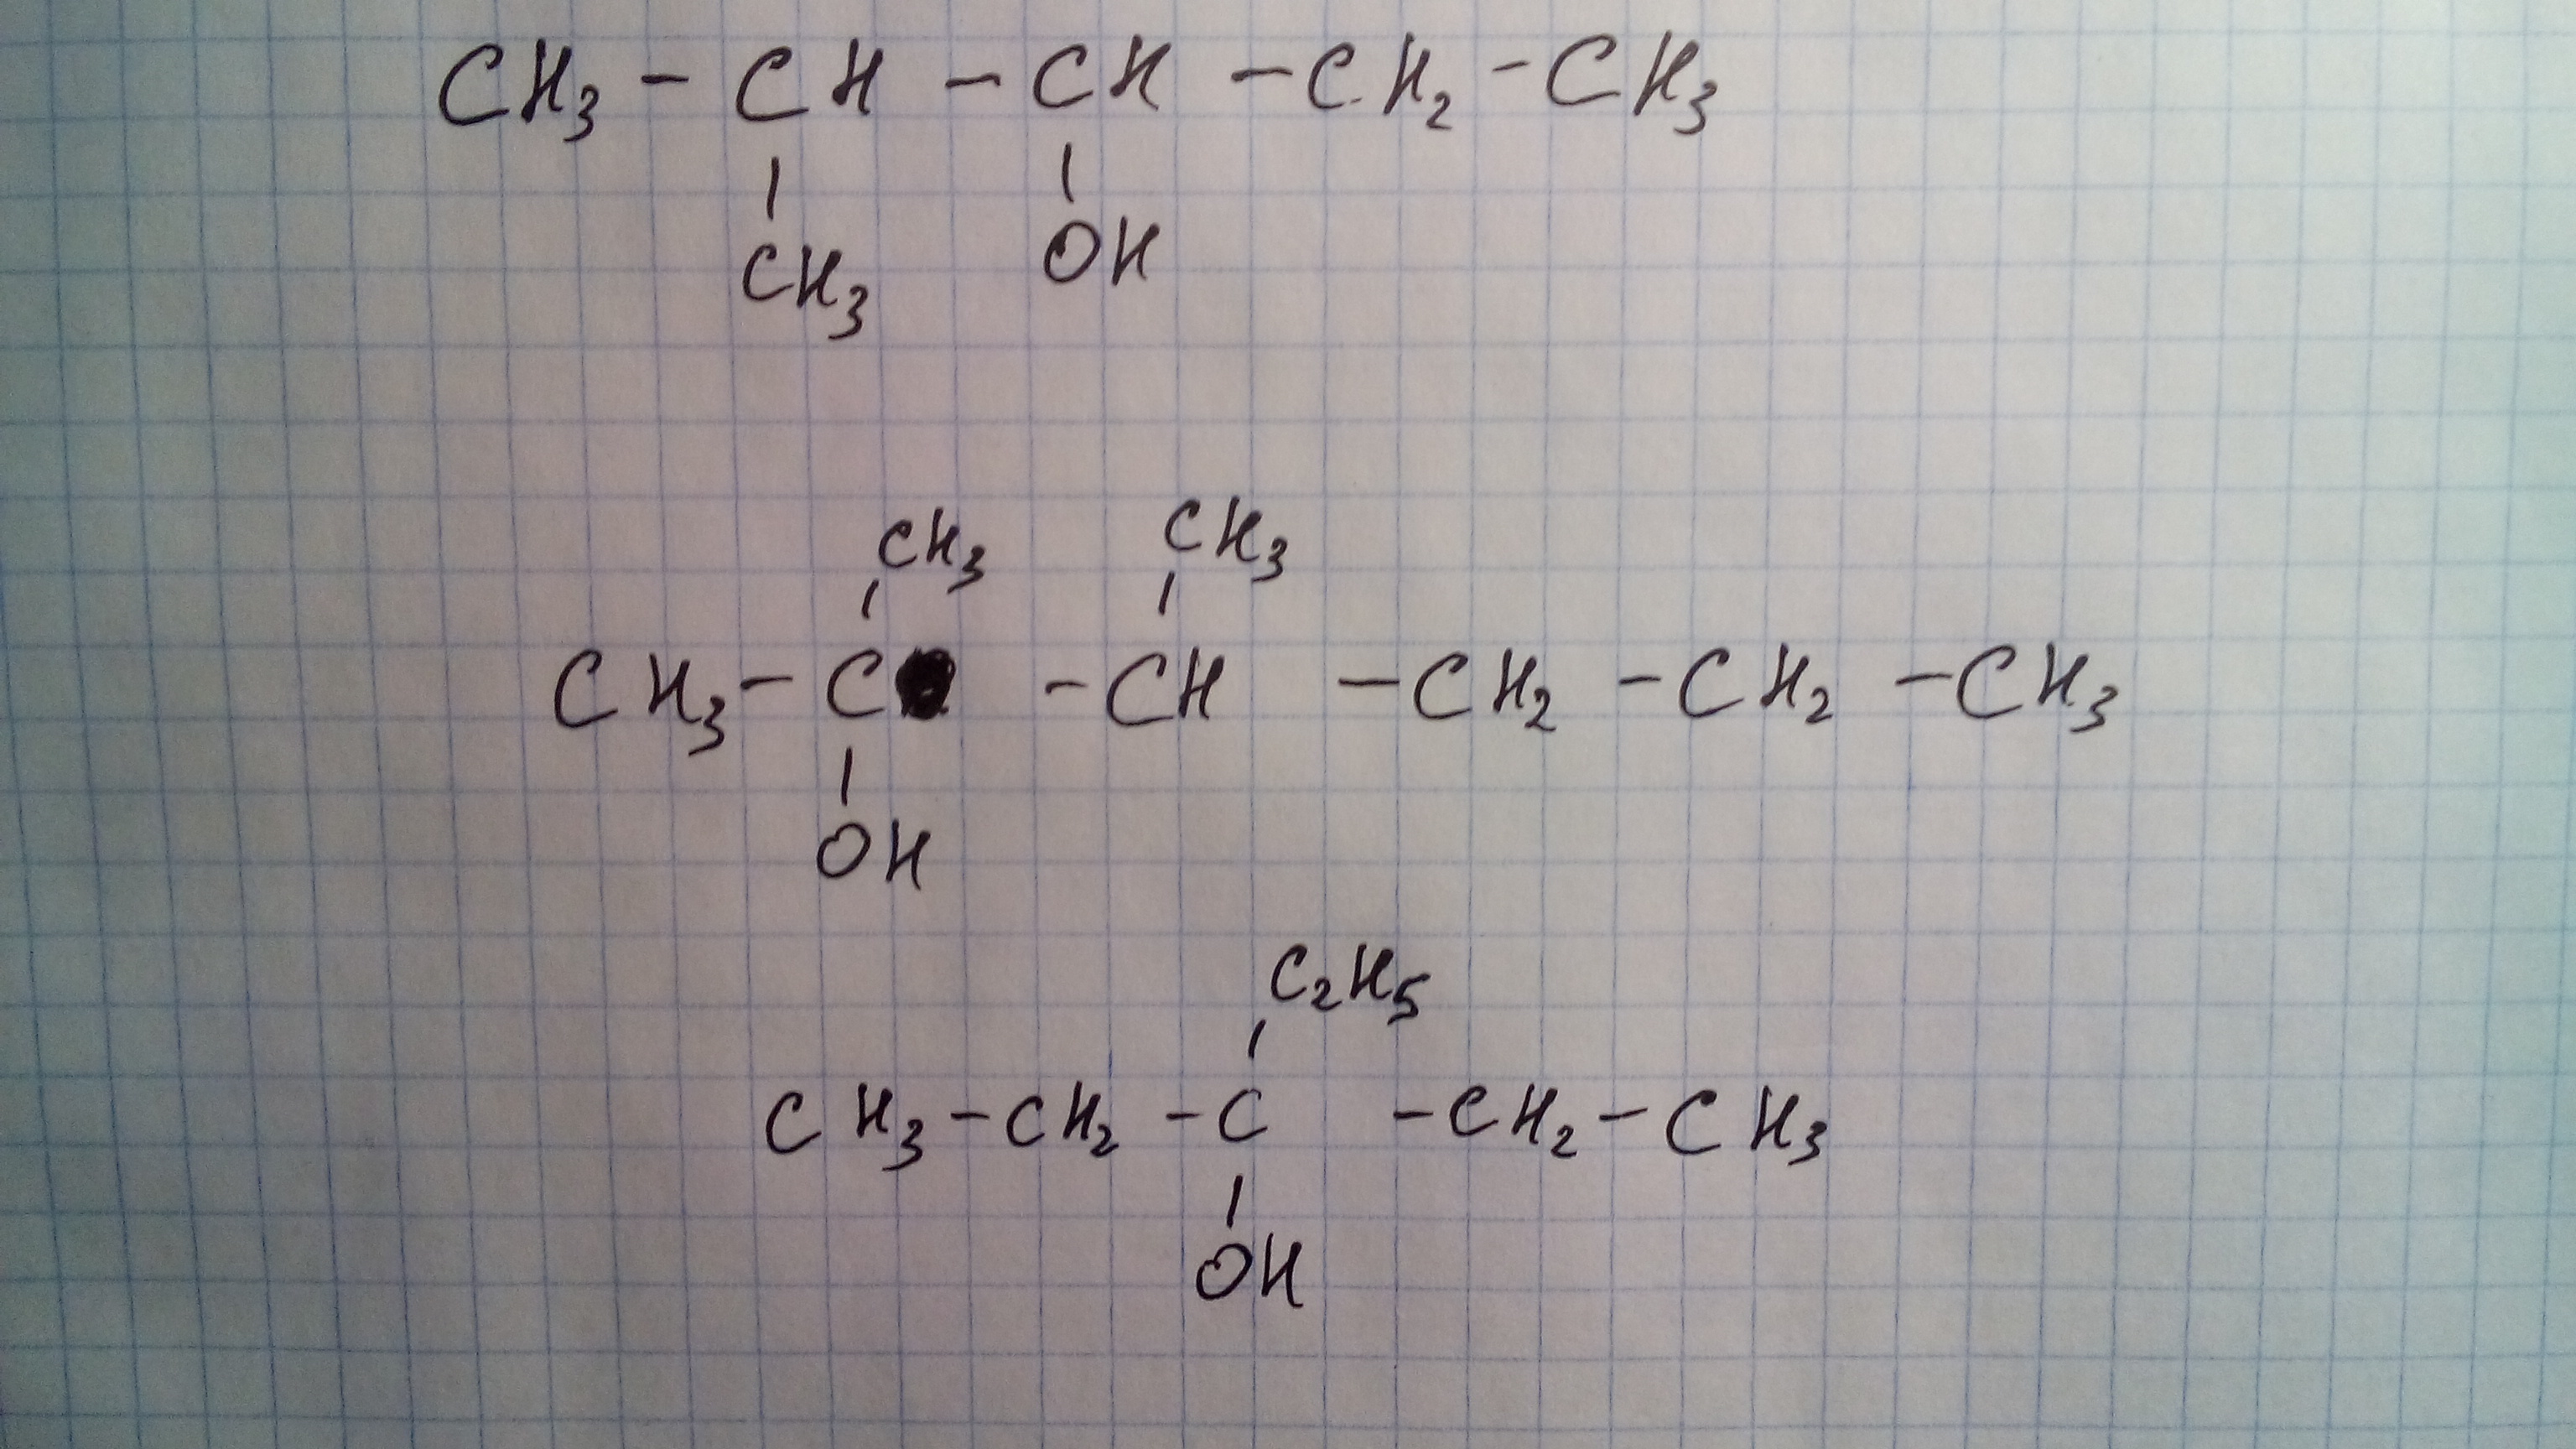 CH₃ - CH - CH - CH₂ - CH₃
CH₃ OH
CH₃ CH₃
CH₃ - C - CH - CH₂ - CH₂ - CH₃
OH
C₂H₅
CH₃ - CH₂ - C - CH₂ - CH₃
OH